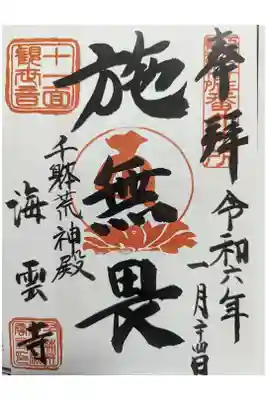 奉拝
令和六年
一月二十四日
施無畏
千躰荒神殿
海雲寺
十一面
観世音